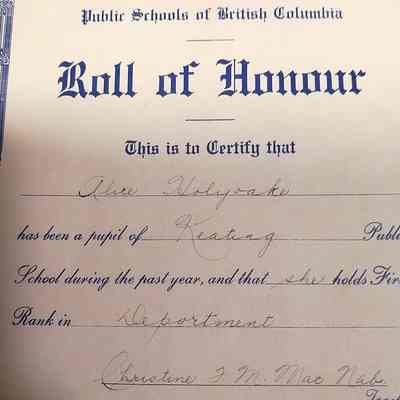 Public Schools of British Columbia
Roll of Honour
This is to Certify that
Alice Holyoake
has been a pupil of Keating Publi
School during the past year, and that she holds Fir
Rank in Deportment
Christine F. M. Mac Nab.